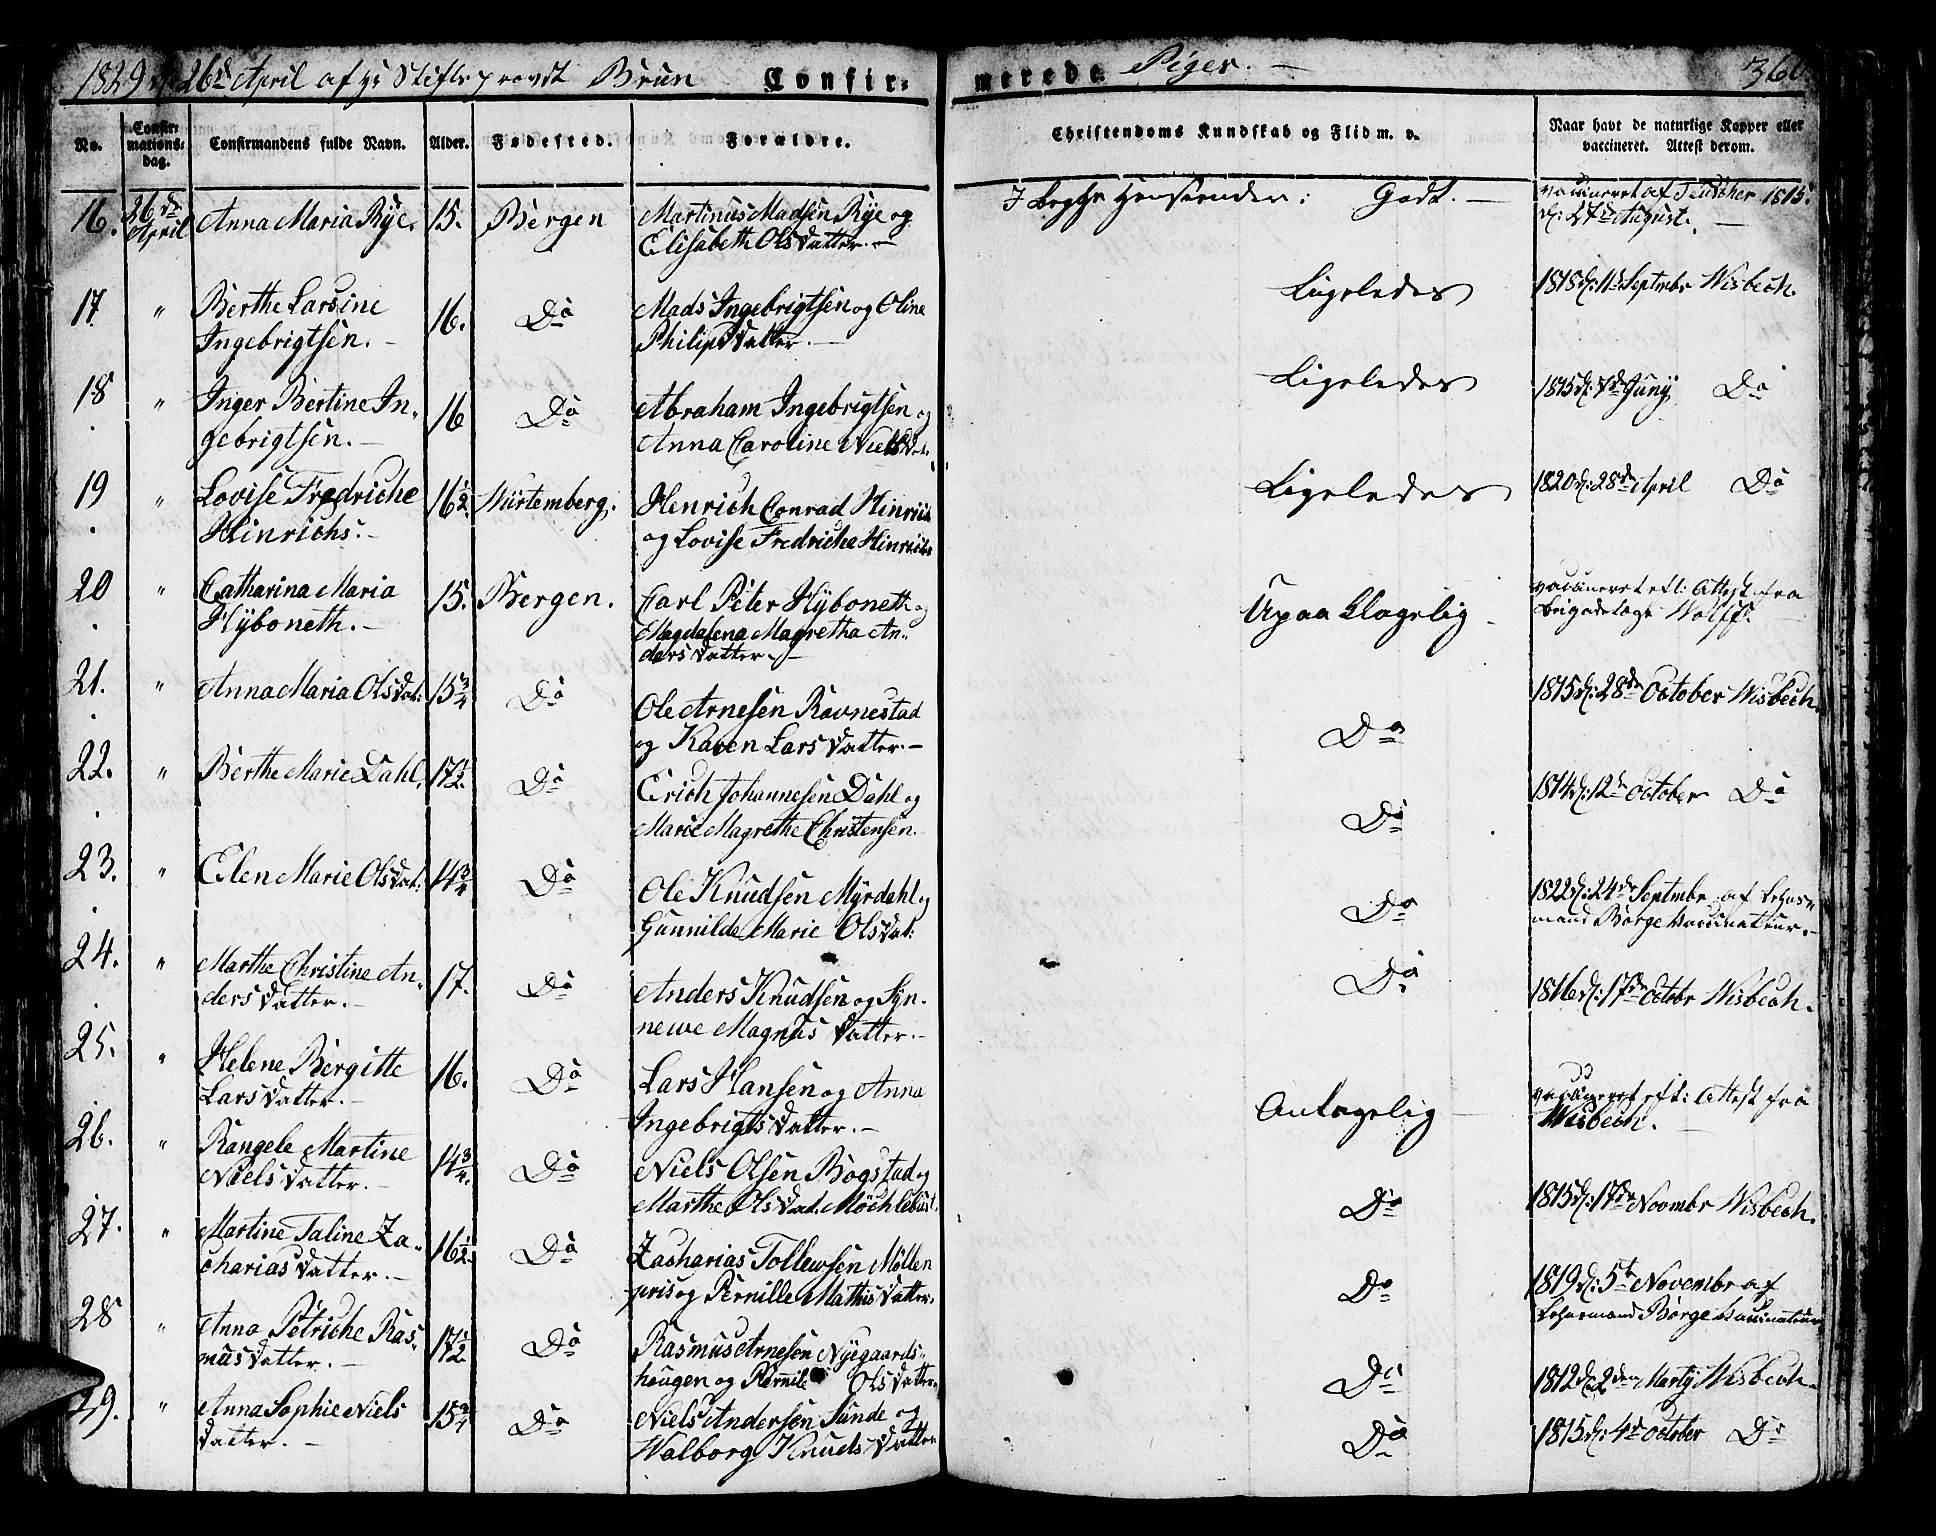 1829 d: 26de April af Hr Stiftsprovst Brun Confir-
merede Piger. 360.
No. Confirmations-dag. Confirmandens fulde Navn. Alder. Fødested. Forældre. Christendoms Kundskab og Flid m. v. Naar havt de naturlige Kopper eller vaccineret. Attest derom.
16. 26de April Anna Maria Rÿe. 15. Bergen Martinus Madsen Rÿe og
Elisabeth Olsdatter. I begge Henseender: Godt. vaccineret af 1815.
d: 27de August.
17. " Berthe Larsine
Ingebrigtsen. 16. Do Mads Ingebrigtsen og Oline
Philipsdatter. Ligeledes 1815 d: 11te Septembr Wisbech.
18. " Inger Bertine In-
gebrigtsen. 16 Do Abraham Ingebrigtsen og
Anna Caroline Nielsdat: Ligeledes 1815 d: Junÿ Do
19. " Lovise Fredriche
Hinrichs. 16½. Würtemberg. Henrich Conrad Hinrich
og Lovise Fredriche Hinrichs Ligeledes 1820 d: 28de April Do
20. " Catharina Maria
Hÿboneth. 15. Bergen. Carl Peter Hÿboneth og
Magdalena Magretha An-
dersdatter. Upaaklagelig vaccineret eft: Attest fra
Brigadelæge Wolff.
21. " Anna Maria Olsdat: 15¾ Do Ole Arnesen Ravnestad
og Karen Larsdatter. Do 1815 d: 28de October Wisbech.
22. " Berthe Marie Dahl. 17½. Do Erich Johannesen Dahl og
Marie Magrethe Christensen. Do 1814 d: 12te October Do
23. " Elen Marie Olsdat: 14¾ Do Ole Knudsen Mÿrdahl og
Gunnilde Marie Olsdat: Do 1822 d: 24de Septembr af
mand Børge Vaccinateur.
24. " Marthe Christine An-
dersdatter. 17. Do Anders Knudsen og Sÿn-
newe Magnusdatter. Do 1816 d: 17de Octobr Wisbech.
25. " Helene Bergitte
Larsdatter. 16. Do Lars Hansen og Anna
Ingebrigtsdatter. Antagelig vaccineret eft: Attest fra
Wisbech.
26. " Rangele Martine
Nielsdatter. 14¾. Do Niels Olsen Bogstad og
Marthe Olsdat. Möchlebust. Do 1815 d: 17de Novembr Wisbech.
27. " Martine Taline Za-
chariasdatter. 16½. Do Zacharias Tollewsen Möllen
pris og Pernille Mathisdatter. Do 1819 d: 5te Novembr af
Børge Vaccinateur
28 " Anna Petriche Ras-
musdatter. 17½. Do Rasmus Arnesen Nÿegaards-
haugen og Pernile Olsdatter. Do 1812 d: 2den Martÿ Wisbech.
29. " Anna Sophie Niels
datter. 15¾ Do Niels Andersen Sunde og
Walborg Knudsdatter Do 1815 d: 4de October Do